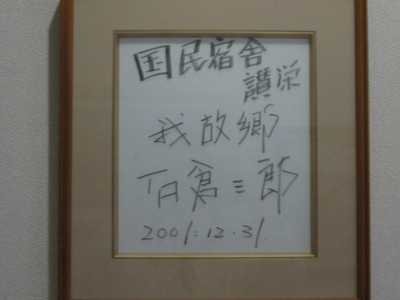 国民宿舎
讃栄
我故郷
石倉三郎
2001.12.31